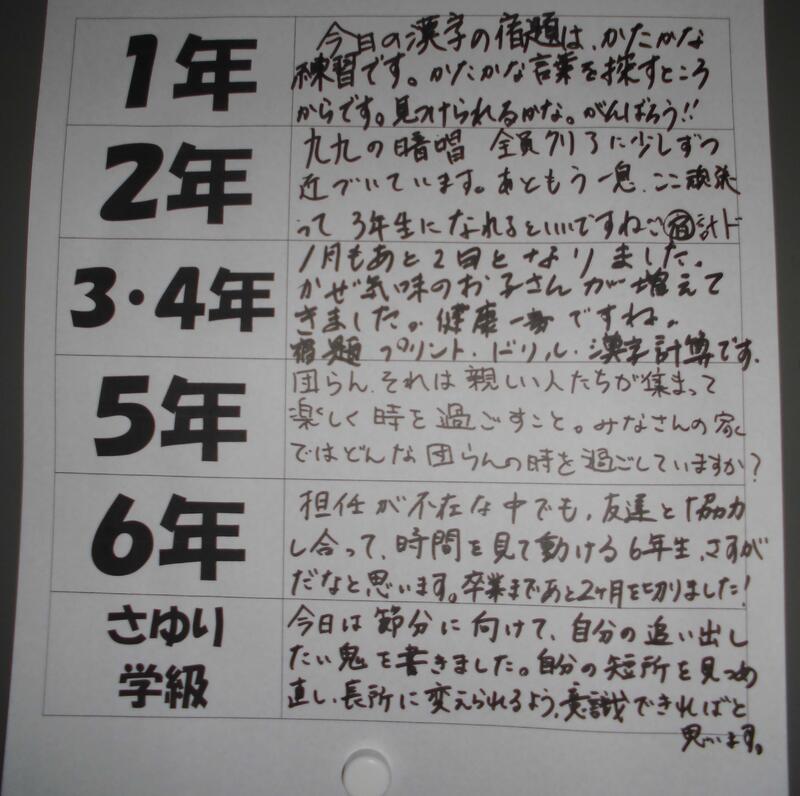 1年
今日の漢字の宿題は、かたかな
練習です。かたかな言葉を探すところ
からです。見つけられるかな。がんばろう!!
2年
九九の暗唱 全員クリアに少しずつ
近づいています。あともう一息、ここ頑張
って3年生になれるといいですね。㊪計ド
3・4年
1月もあと2日となりました。
かぜ気味のお子さんが増えて
きました。健康一番ですね。
宿題 プリント・ドリル・漢字計算です。
5年
団らん、それは親しい人たちが集まって
楽しく時を過ごすこと。みなさんの家
ではどんな団らんの時を過ごしていますか?
6年
担任が不在な中でも、友達と協力
し合って、時間を見て動ける6年生、さすが
だなと思います。卒業まであと2ヶ月を切りました!
さゆり
学級
今日は節分に向けて、自分の追い出し
たい鬼を書きました。自分の短所を見つめ
直し、長所に変えられるよう、意識できればと
思います。